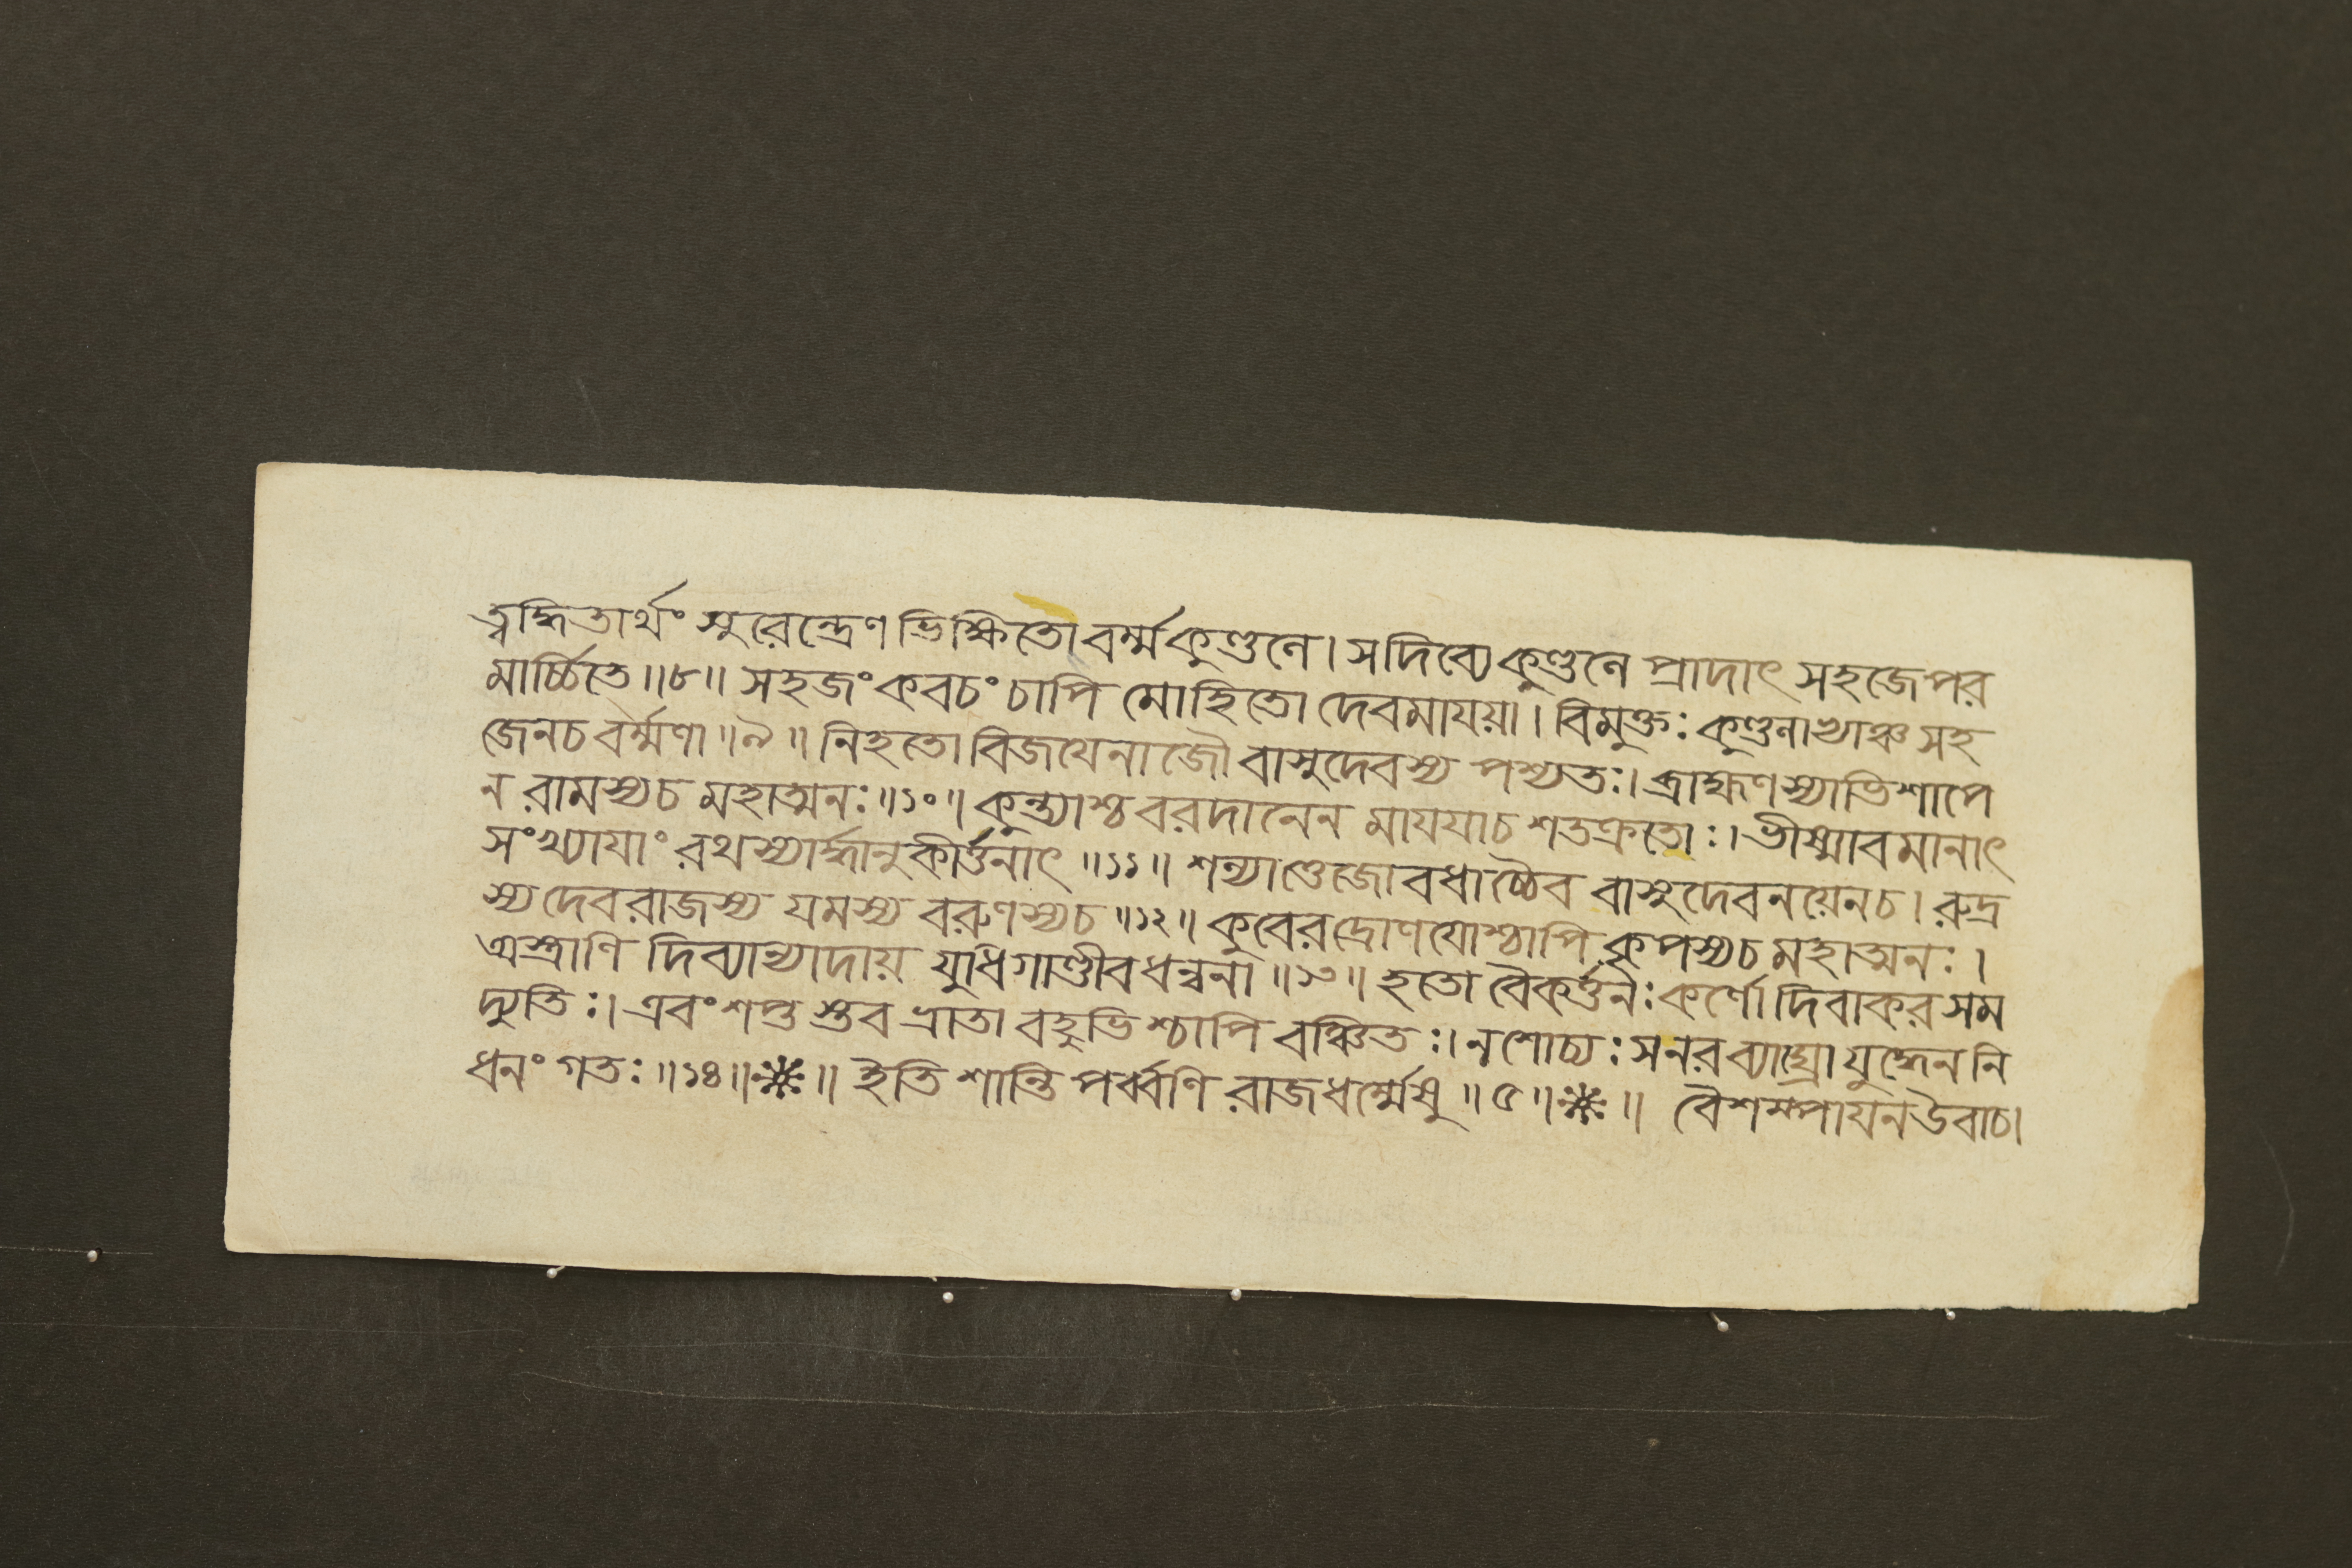 ত্বদ্ধিতার্থং সুরেন্দ্রেণ ভিক্ষিতো বর্ম্মকুণ্ডলে। স দিব্যে কুণ্ডলে প্রাদাৎ সহজে পর
মার্চ্চিতে॥৮॥ সহজং কবচং চাপি মোহিতো দেবমাযয়া। বিমুক্তঃ কুণ্ডলাভ্যাঞ্চ সহ
জেনচ বর্ম্মণা॥৯॥ নিহতো বিজযেনাজৌ বাসুদেবস্য পশ্যতঃ। ব্রাহ্মণস্যাভিশাপে
ন রামস্যচ মহাত্মনঃ॥১০॥ কুন্ত্যাশ্চ বরদানেন মাযযাচ শতক্রতোঃ। ভীষ্মাবমানাৎ
সংখ্যাযাং রথস্যার্দ্ধানুকীর্ত্তনাৎ॥১১॥ শল্যাত্তেজোবধাচ্চৈব বাসুদেবনয়েনচ। রুদ্র
স্য দেবরাজস্য যমস্য বরুণস্যচ॥১২॥ কুবেরদ্রোণযোশ্চাপি কৃপস্যচ মহাত্মনঃ।
অস্ত্রাণি দিব্যান্যাদায় যুধি গাণ্ডীবধন্বনা॥১৩॥ হতো বৈকর্ত্তনঃ কর্ণো দিবাকরসম
দ্যুতিঃ। এবং শপ্তস্তব ভ্রাতা বহুভিশ্চাপি বঞ্চিতঃ। ন শোচ্যঃ স নরব্যাঘ্রো যুদ্ধেন নি
ধনং গতঃ॥১৪॥❋॥ ইতি শান্তিপর্ব্বণি রাজধর্ম্মেষু॥৫॥❋॥ বৈশম্পাযন উবাচ।